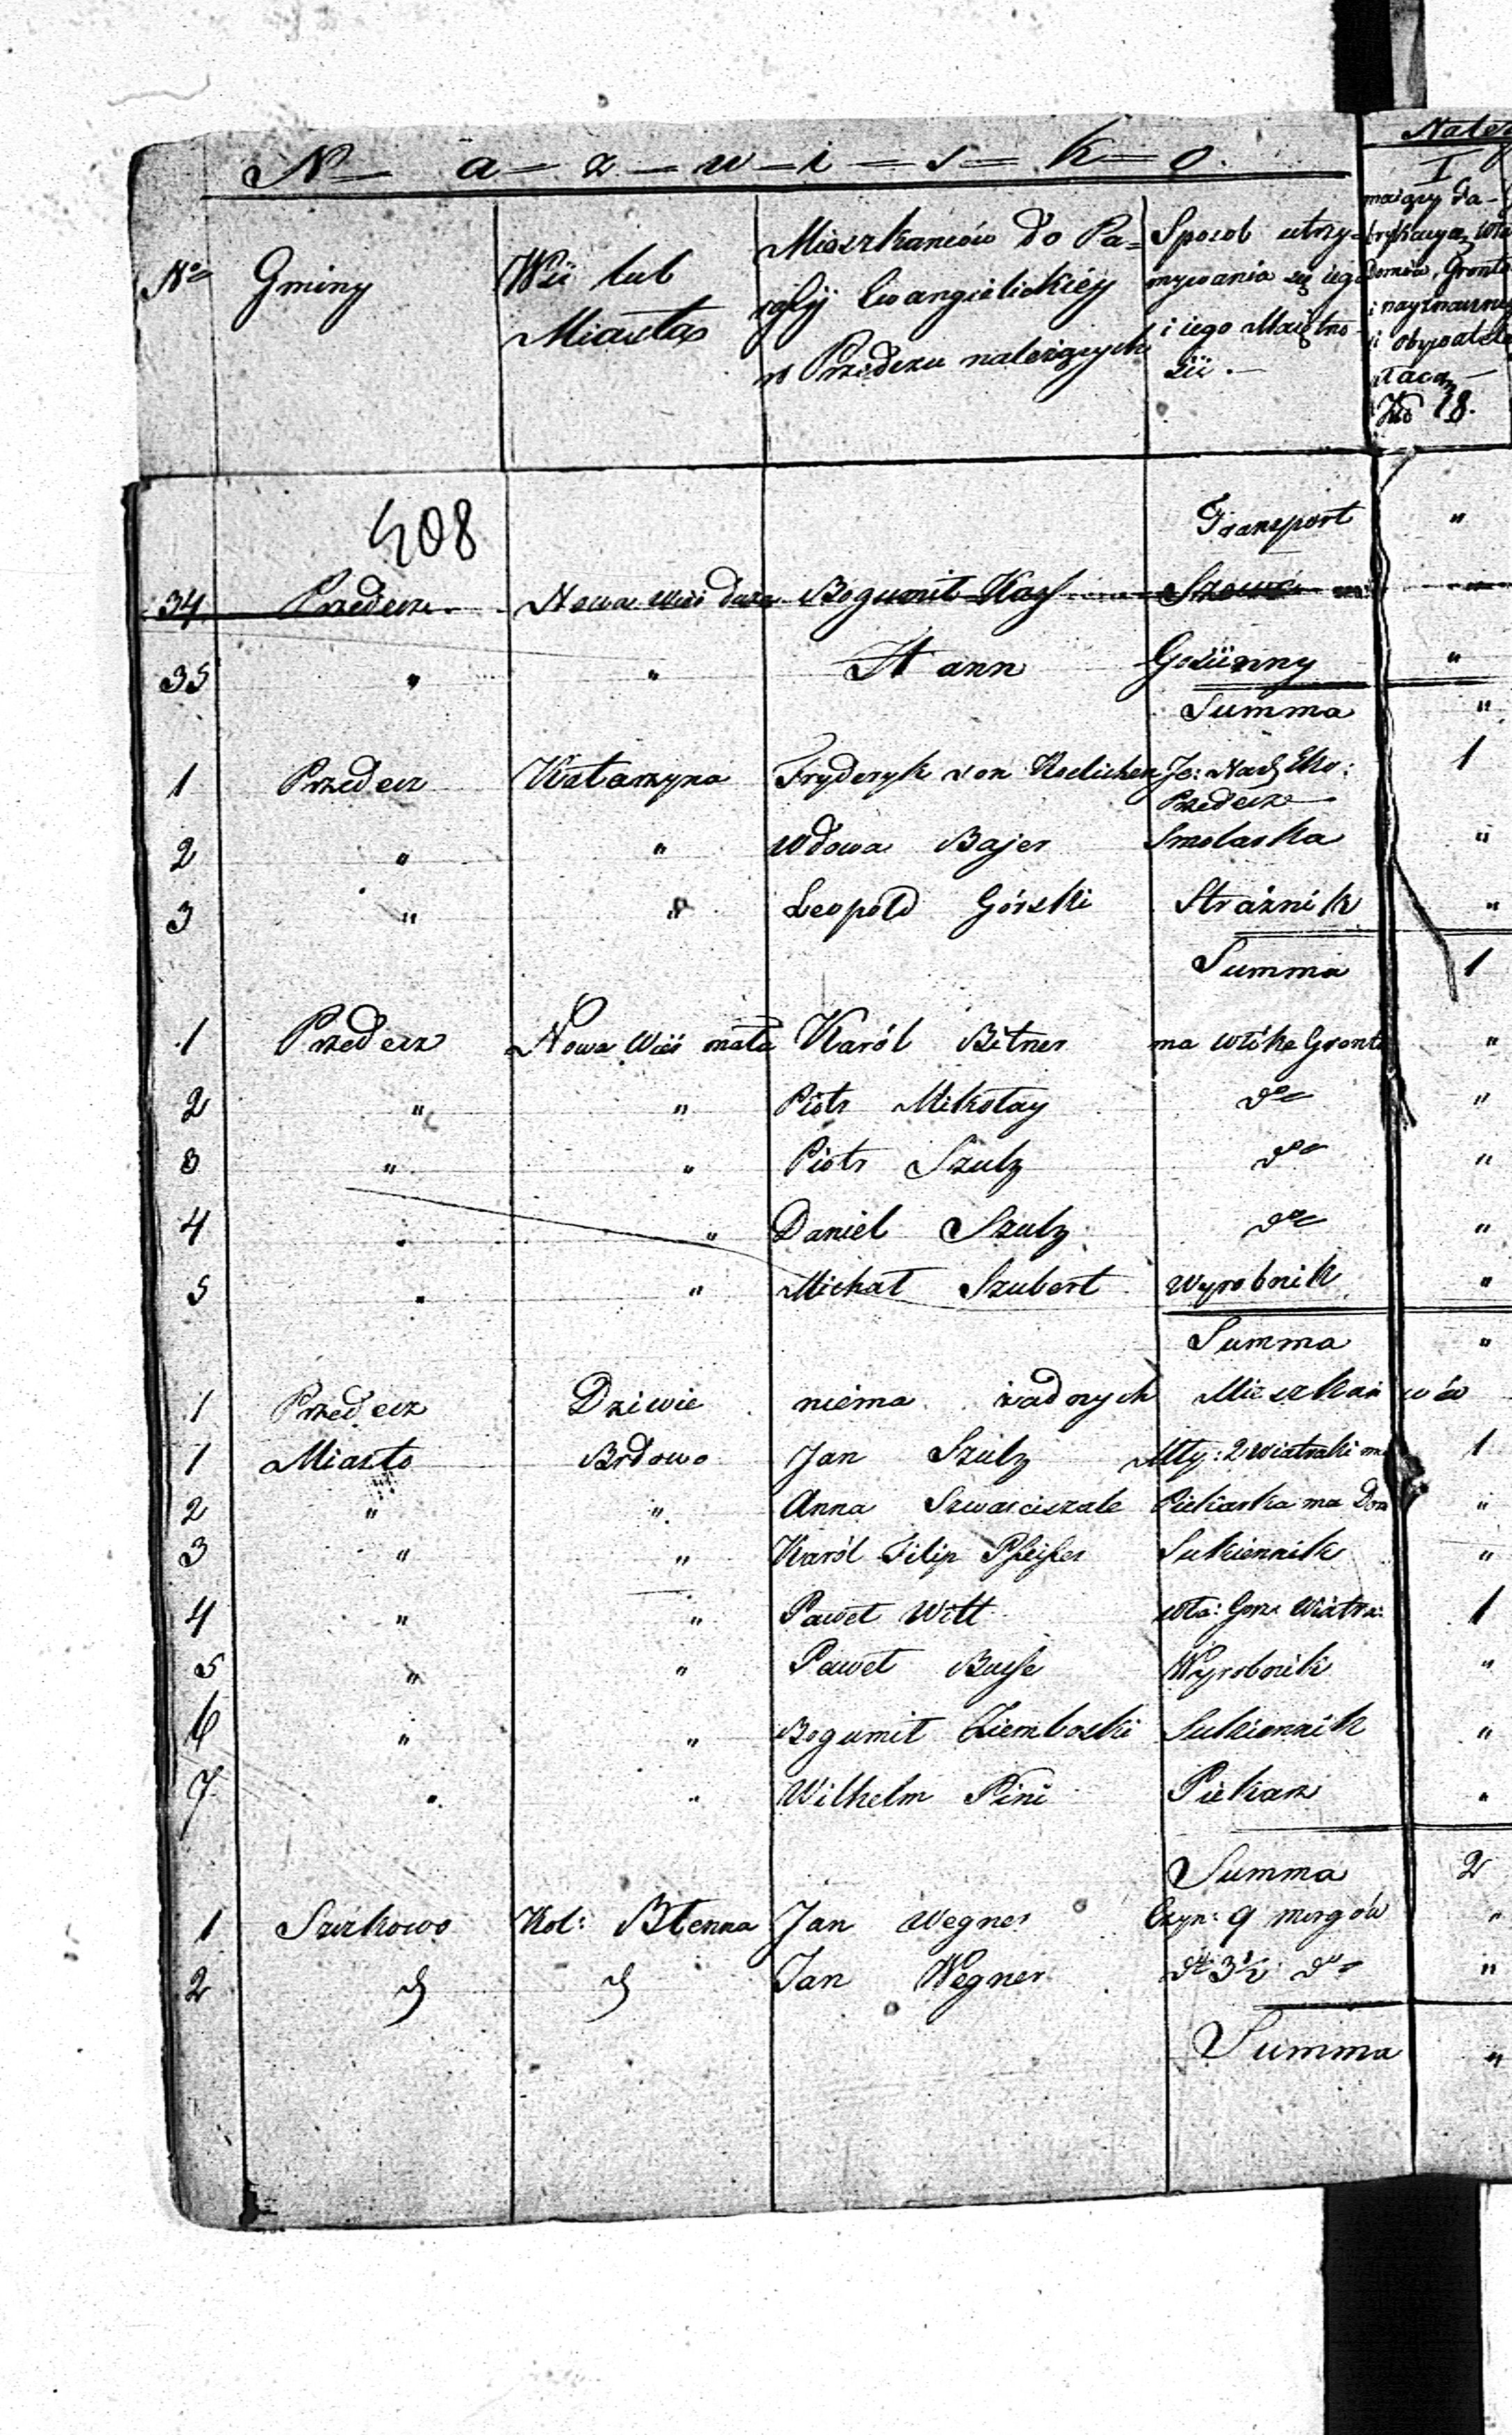 N=a=z=w=i=s=k=o.
Należ
No Gminy Wsi lub Miasta Mieszkańców do Pa= rafij Ewangielickiéy w Przedczu należących Sposob utrzy= mywania się iego i iego Maiętno= ści.
I
408 Transport "
34 Przedecz Nowa wieś duża Bogumił Kass Szewc "
35 " " Hann Gościnny "
Summa "
1 Przedecz Katarzyna Fryderyk von Je: Nad: Eko: 1
Przedecz
2 " " Wdowa Bajer Smolarka "
3 " " Leopold Górski Strażnik "
Summa 1
1 Przedecz Nowa Wieś mała Karól Bitner ma włókę Gronta "
2 " " Piotr Mikołay do "
3 " " Piotr Szulz do "
4 " " Daniel Szulz do "
5 " " Michał Szubert Wyrobnik "
Summa "
1 Przedecz Dziwie niéma żadnych Mieszkańców
1 Miasto Brdowo Jan Szulz Mły: 2 wiatraki ma 1
2 " " Anna Piekarka ma Dom "
3 " " Karól Filip Pfeifer Sukiennik "
4 " " Paweł Witt wła: Gorz: Wiatra: 1
5 " " Paweł Busse Wyrobnik "
6 " " Bogumił Ziemboski Sukiennik "
7 " " Wilhelm Pini Piekarz "
Summa 2
1 Szczkowo Kol: Błenna Jan Wegner Czyn: 9 morgów "
2 d d Jan Wegner dt 3½ do "
Summa "